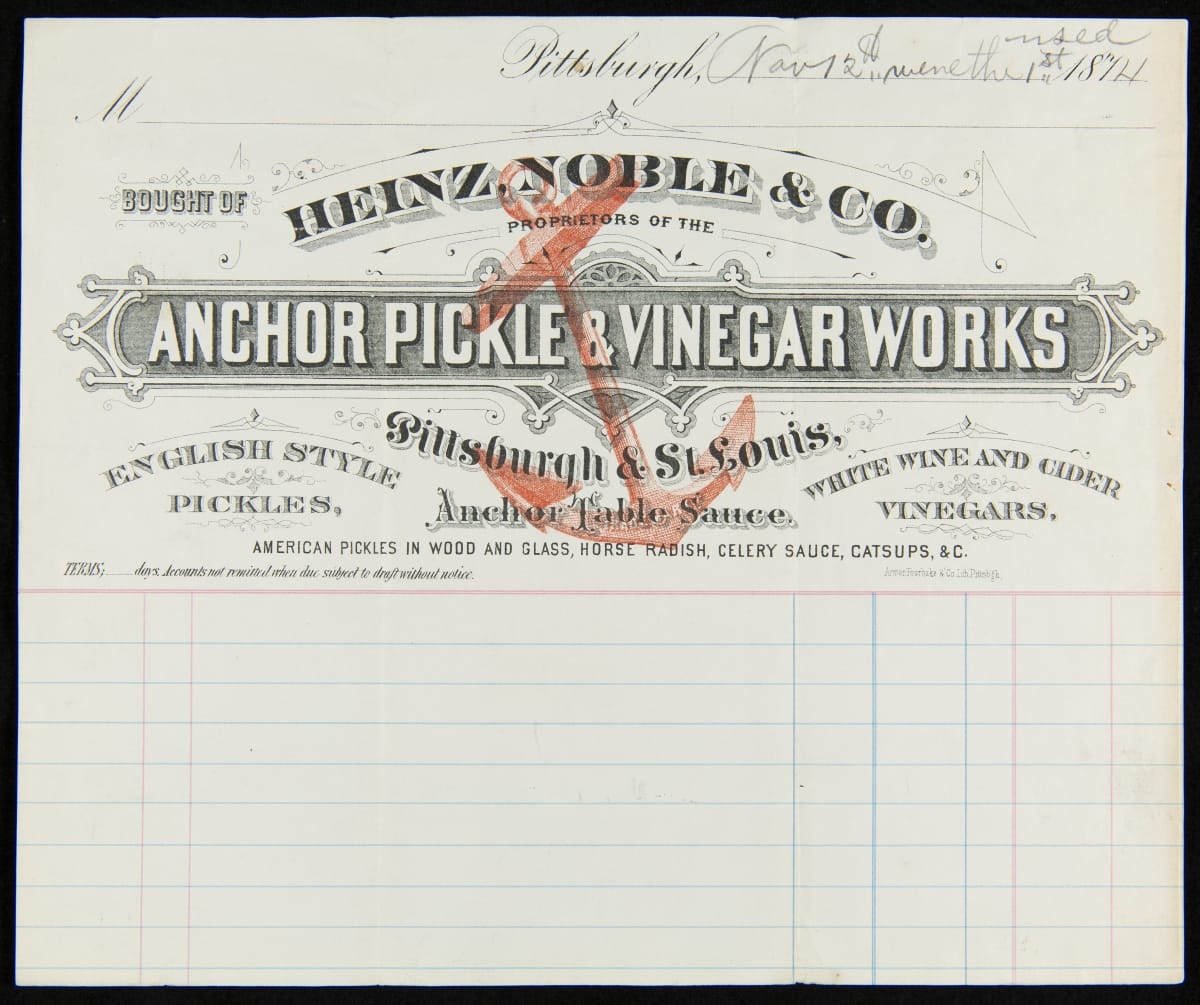 used
Pittsburgh, Nov 12th were the 1st 1874
M
BOUGHT OF
HEINZ, NOBLE & CO.
PROPRIETORS OF THE
ANCHOR PICKLE & VINEGAR WORKS
Pittsburgh & St. Louis,
ENGLISH STYLE
PICKLES,
Anchor Table Sauce.
WHITE WINE AND CIDER
VINEGARS,
AMERICAN PICKLES IN WOOD AND GLASS, HORSE RADISH, CELERY SAUCE, CATSUPS, &C.
TERMS; days. Accounts not remitted when due subject to draft without notice.
& Co. Lith. Pittsbgh.